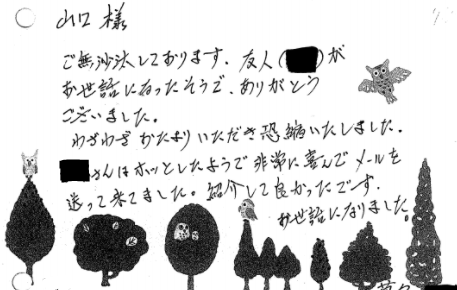 山口 様
ご無沙汰しております。友人( )が
お世話になったそうで、ありがとう
ございました。
わざわざおたよりいただき恐縮いたしました。
さんはホッとしたようで非常に喜んでメールを
送って来てました。紹介して良かったでーす。
お世話になりました。